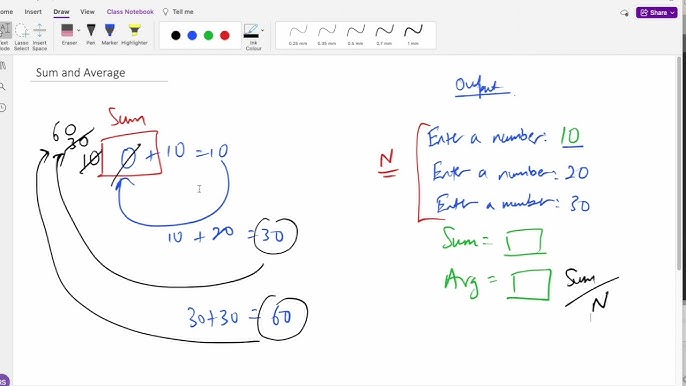 Home Insert Draw View Class Notebook Tell me
Share
Text Mode Lasso Select Insert Space Eraser Pen Marker Highlighter
Ink Colour
0.25 mm 0.35 mm 0.5 mm 0.7 mm 1 mm
Sum and Average
Output
Sum
60
30
10 0 + 10 = 10
10 + 20 = 30
30+30 = 60
N
Enter a number: 10
Enter a number: 20
Enter a number: 30
Sum =
Avg = Sum / N
RS